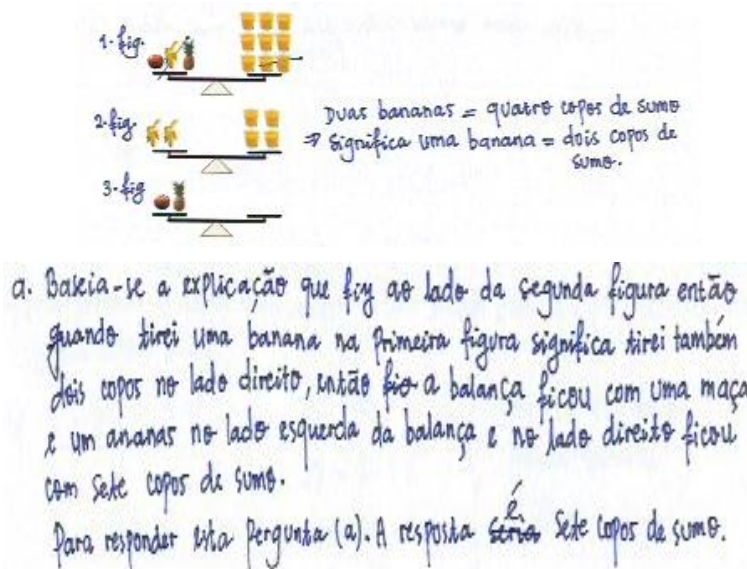 1-fig.
2-fig.
Duas bananas = quatro copos de sumo
⇒ significa uma banana = dois copos de
sumo.
3-fig
a. Baseia-se a explicação que fiz ao lado da segunda figura então
quando tirei uma banana na primeira figura significa tirei também
dois copos no lado direito, então fio a balança ficou com uma maça
e um ananas no lado esquerda da balança e no lado direito ficou
com sete copos de sumo.
Para responder esta pergunta (a). A resposta seria é sete copos de sumo.